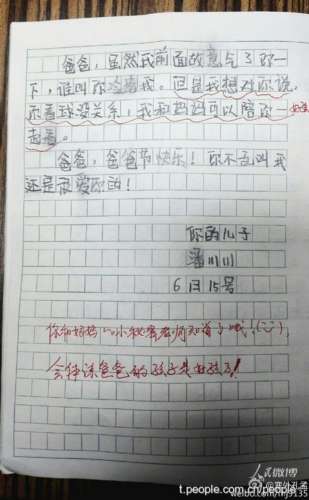 爸爸，虽然我前面故意气了你一
下，谁叫你 我。但是我想对你说，
你看球没关系，我和妈妈可以陪你一
起看。
爸爸，爸爸节快乐！你不 叫我
还是很爱你的！
你的儿子
潘川川
6月15号
你和妈妈的小秘密老师知道了哦！
会体谅爸爸的孩子是好孩子！
人民微博
t.people.com.cn/people
weibo.com/hj5135